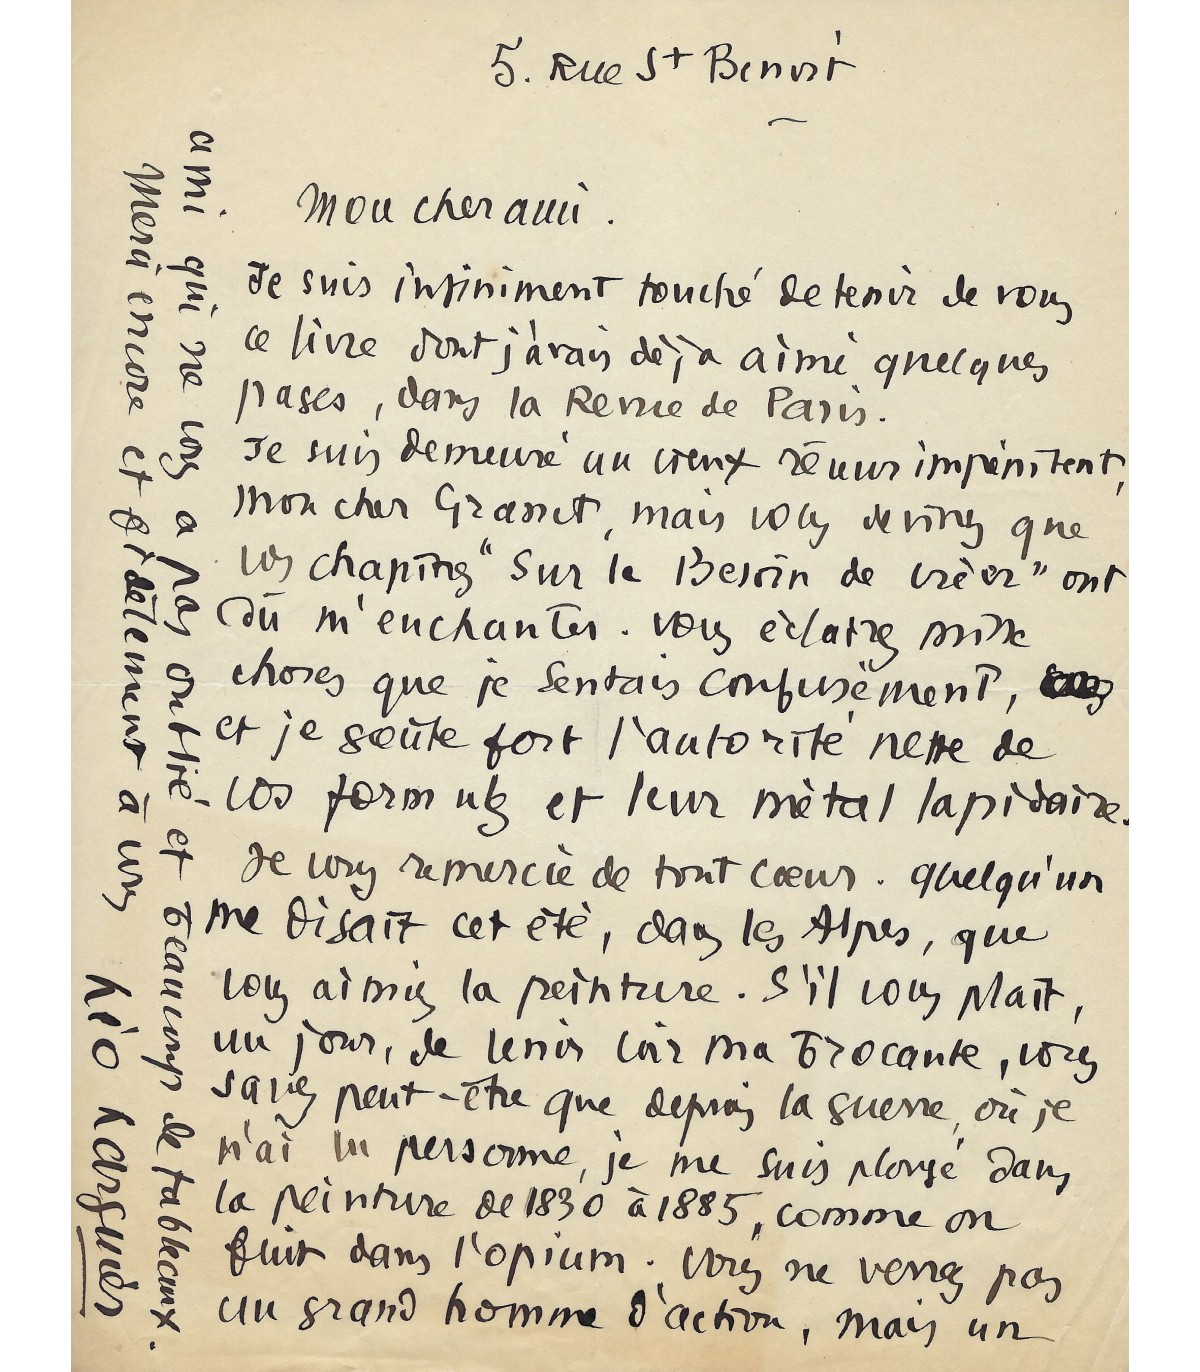 5. Rue St Benoit
Mon cher ami.
Je suis infiniment touché de tenir de vous
ce livre dont j'avais déjà aimé quelques
pages, dans la Revue de Paris.
Je suis demeuré un vieux rêveur impénitent,
mon cher Grasset, mais vous devinez que
vos chapitres "Sur le Besoin de créer" ont
dû m'enchanter. Vous éclairez mille
choses que je sentais confusément,
et je goûte fort l'autorité nette de
vos formules et leur métal lapidaire.
Je vous remercie de tout cœur. Quelqu'un
me disait cet été, dans les Alpes, que
vous aimiez la peinture. S'il vous plaît,
un jour, de venir voir ma brocante, vous
savez peut-être que depuis la guerre, où je
n'ai vu personne, je me suis plongé dans
la peinture de 1830 à 1885, comme on
fuit dans l'opium. Vous ne verrez pas
un grand homme d'action, mais un
ami qui ne vous a pas oublié et beaucoup de tableaux.
Merci encore et fidèlement à vous
Léo Larguier